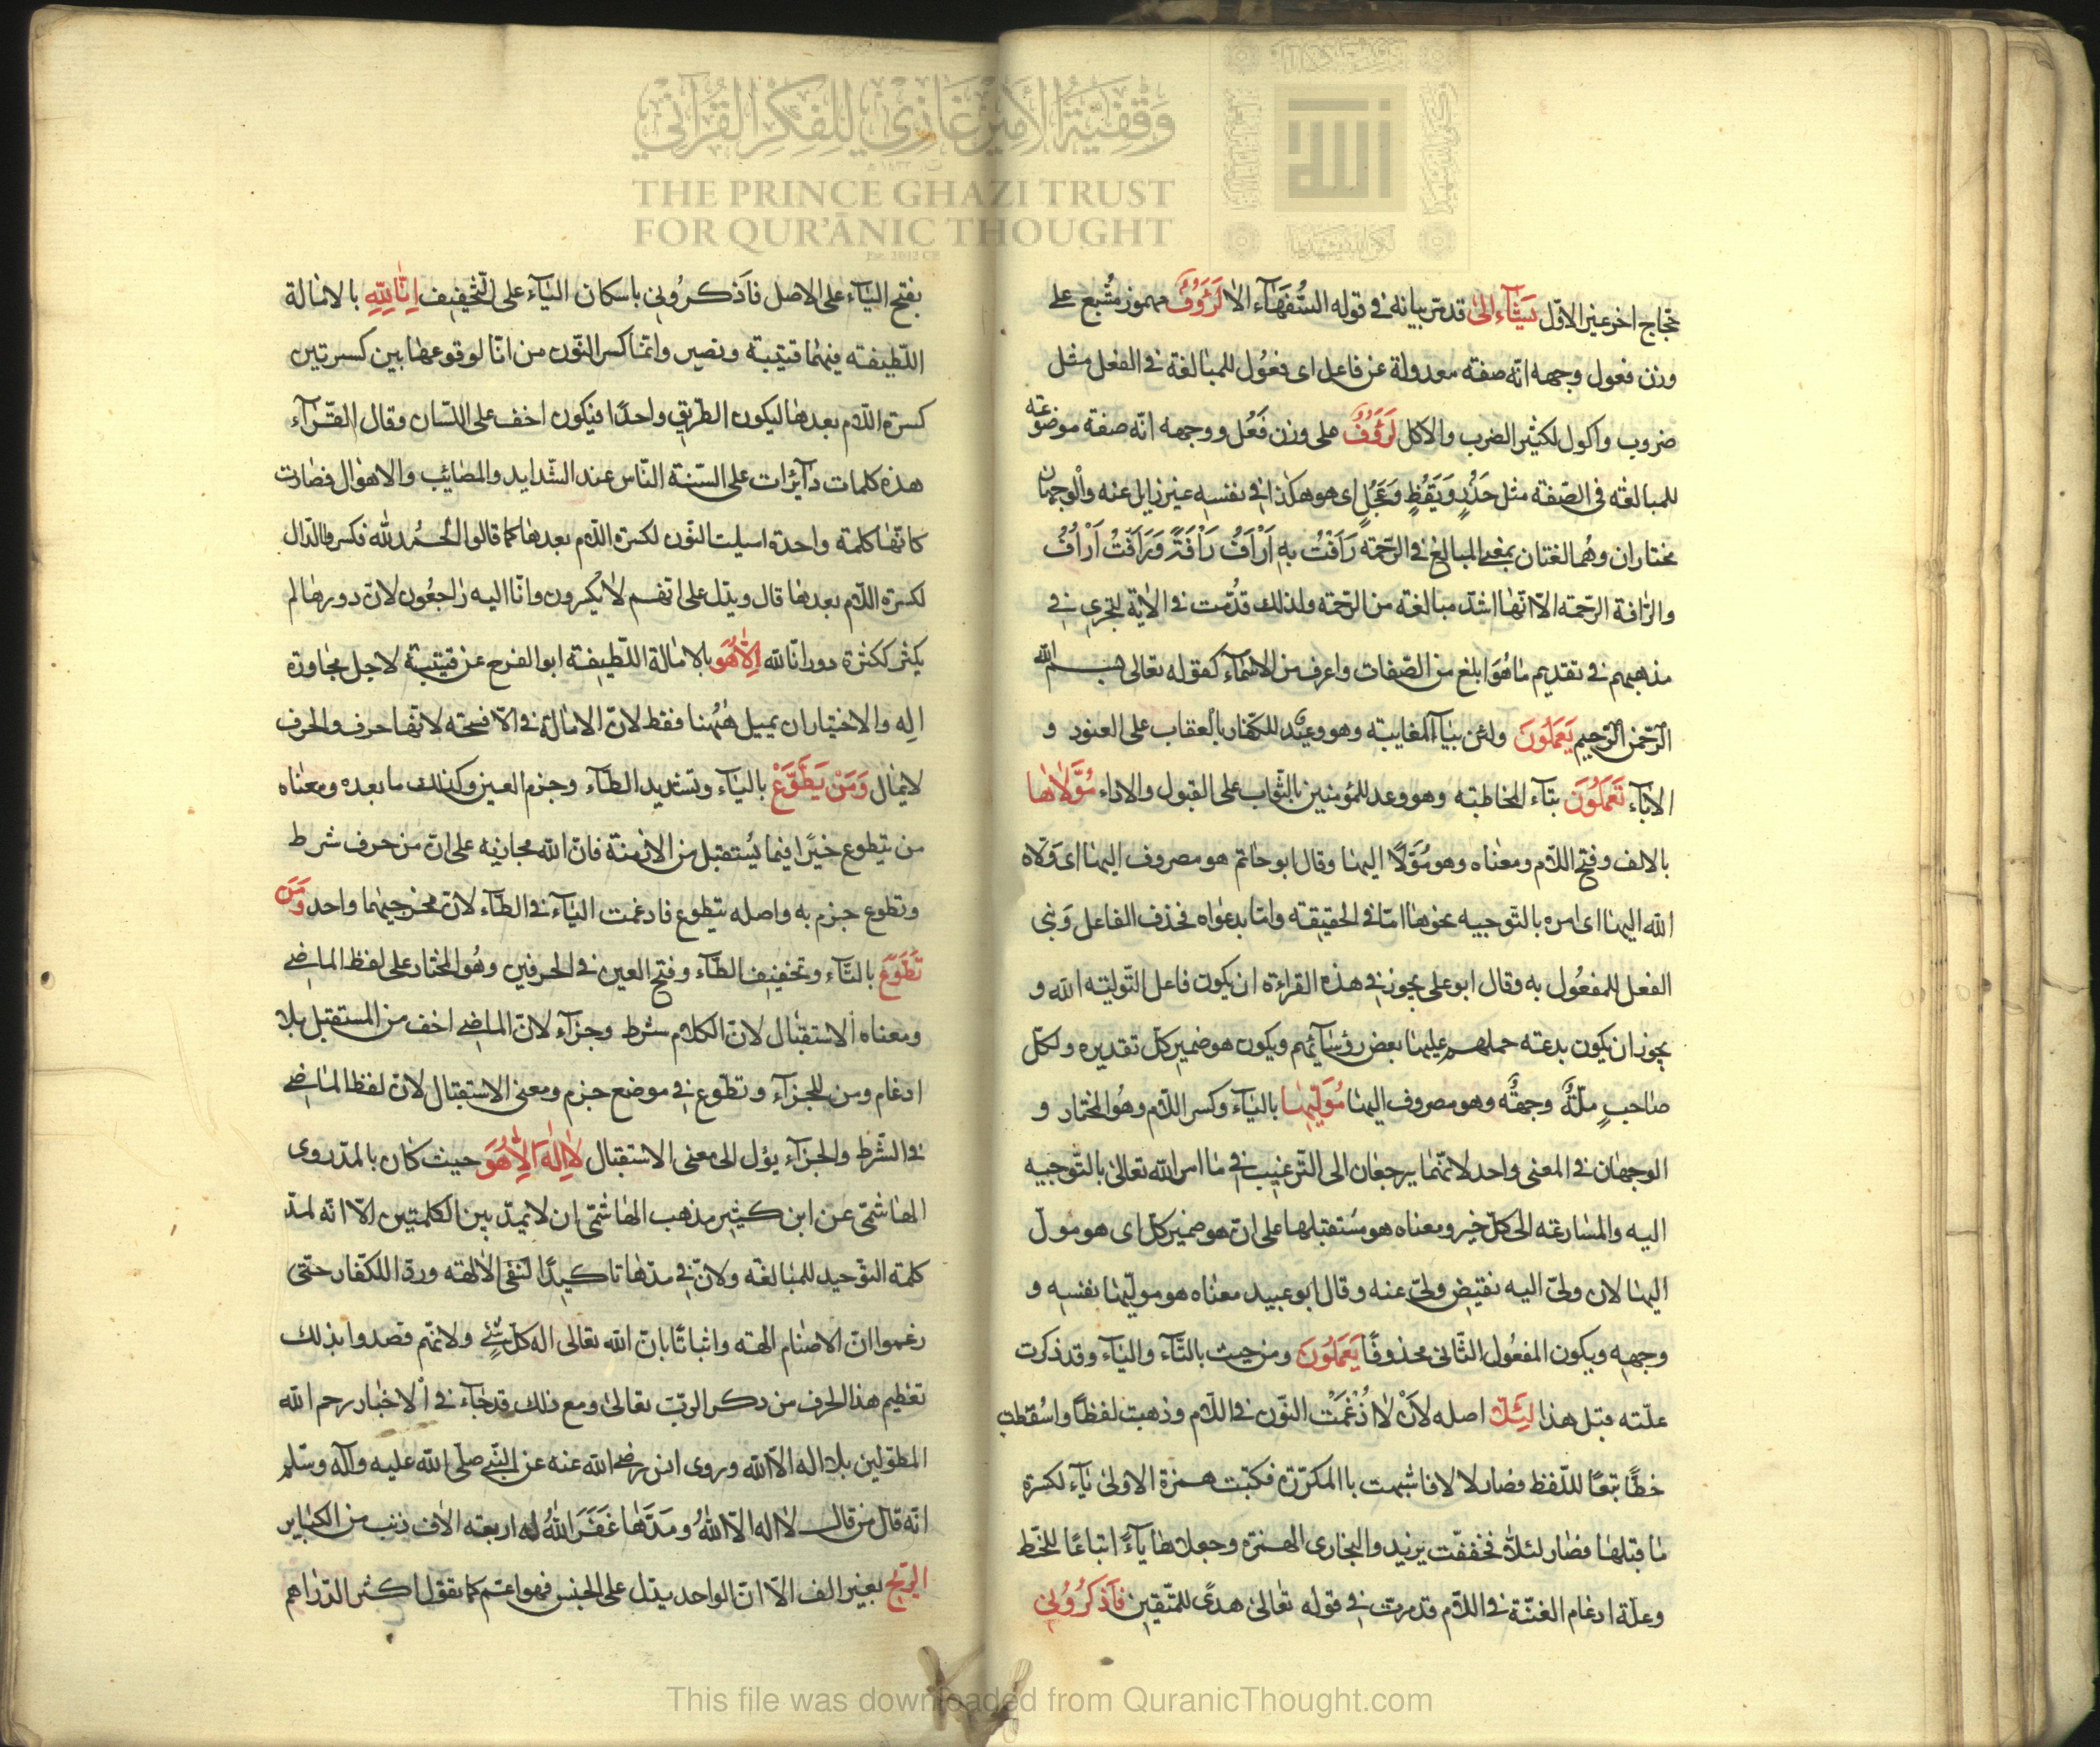 وقفية الأمير غازي للفكر القرآني
THE PRINCE GHAZI TRUST
FOR QUR'ĀNIC THOUGHT
حجاج اخر عير الاول يشاء الى قد مر بيانه في قوله السفهاء الا لرؤوف مهموز مشبع على
وزن فعول وجهه انه صفة معدولة عن فاعل اى فعول للمبالغة في الفعل مثل
ضروب واكول لكثير الضرب والاكل لرؤف على وزن فعل ووجهه انه صفة موضوعة
للمبالغة فى الصفة مثل حذر ويقظ وعجل اى هو هكذا في نفسه غير زايل عنه والوجهان
مختاران وهما لغتان بمعنى المبالغ في الرحمة رافت به اراف رافة ورافت اراف
والرافة الرحمة الا انها اشد مبالغة من الرحمة ولذلك قدمت في الاية لتجرى في
مذهبهم في تقديم ما هو ابلغ من الصفات واعرف من الاسماء كقوله تعالى بسم الله
الرحمن الرحيم يعملون ولئن بياء المغايبة وهو وعيد للكفار بالعقاب على العنود و
الاباء تعملون بتاء المخاطبة وهو وعد للمؤمنين بالثواب على القبول والاداء مولاها
بالالف وفتح اللام ومعناه وهو مولا اليها وقال ابو حاتم هو مصروف اليها اى ولاه
الله اليها اى امره بالتوجيه نحوها اما في الحقيقة واما بدعواه فحذف الفاعل وبنى
الفعل للمفعول به وقال ابو على يجوز في هذه القراءة ان يكون فاعل التولية الله و
يجوز ان يكون بدعته حملهم عليها بعض رؤسائهم ويكون هو ضمير كل تقديره ولكل
صاحب ملة وجهة وهو مصروف اليها موليها بالياء وكسر اللام وهو المختار و
الوجهان في المعنى واحد لانهما يرجعان الى الترغيب في ما امر الله تعالى بالتوجيه
اليه والمسارعة الى كل خير ومعناه هو مستقبلها على ان هو ضمير كل اى هو مول
اليها لان ولى اليه نقيض ولى عنه وقال ابو عبيد معناه هو موليها نفسه و
وجهه ويكون المفعول الثانى محذوفا يعملون ومن حيث بالتاء والياء وقد ذكرت
علته قبل هذا لئلا اصله لان لا ادغمت النون في اللام وذهبت لفظا واسقطت
خطا تبعا للفظ فصار لا لا فاشبهت باالمكررة فكتبت همزة الاولى ياء لكسرة
ما قبلها فصار لئلا فخففت يزيد والبخارى الهمزة وجعلاها ياء اتباعا للخط
وعلة ادغام الغنة في اللام قد مرت في قوله تعالى هدى للمتقين فاذكرونى
بفتح الياء على الاصل فاذكرونى باسكان الياء على التخفيف انا لله بالامالة
اللطيفة فيهما قتيبة ونصير وانما كسر النون من انا لوقوعها بين كسرتين
كسرة اللام بعدها ليكون الطريق واحدا فيكون اخف على اللسان وقال الفراء
هذه كلمات دائرات على السنة الناس عند الشدايد والمصائب والاهوال فصارت
كانها كلمة واحدة اسيلت النون لكسرة اللام بعدها كما قالوا الحمد لله فكسروا الدال
لكسرة اللام بعدها قال ويدل على انهم لا يكسرون وانا اليه راجعون لان دورها لم
يكثر ككثرة دور انا لله الا هو بالامالة اللطيفة ابو الفرج عن قتيبة لاجل مجاورة
اله والاختيار ان يميل ههنا فقط لان الامالة في الا قبيحة لانها حرف والحرف
لا يمال ومن يطوع بالياء وتشديد الطاء وجزم العين وكذلك ما بعده ومعناه
من يتطوع خيرا فيما يستقبل من الازمنة فان الله مجازيه على ان من حرف شرط
وتطوع جزم به واصله يتطوع فادغمت التاء في الطاء لان مخرجيهما واحد ومن
تطوع بالتاء وتخفيف الطاء وفتح العين في الحرفين وهو المختار على لفظ الماضى
ومعناه الاستقبال لان الكلام شرط وجزاء لان الماضى اخف من المستقبل بلا
ادغام ومن للجزاء وتطوع في موضع جزم ومعنى الاستقبال لان لفظ الماضى
في الشرط والجزاء يؤل الى معنى الاستقبال لا اله الا هو حيث كان بالمد روى
الهاشمى عن ابن كثير مذهب الهاشمى ان لا يمد بين الكلمتين الا انه لمد
كلمة التوحيد للمبالغة ولان في مدها تاكيدا لنفى الالهة وردا للكفار حتى
زعموا ان الاصنام الهة واثباتا بان الله تعالى اله كل شئ ولانهم قصدوا بذلك
تعظيم هذا الحرف من ذكر الرب تعالى ومع ذلك قد جاء في الاخبار رحم الله
المطولين بلا اله الا الله وروى انس رضى الله عنه عن النبى صلى الله عليه وآله وسلم
انه قال من قال لا اله الا الله ومدها غفر الله له اربعة الاف ذنب من الكباير
الريح بغير الف الا ان الواحد يدل على الجنس فهو اعم كما تقول اكثر الدراهم
This file was downloaded from QuranicThought.com